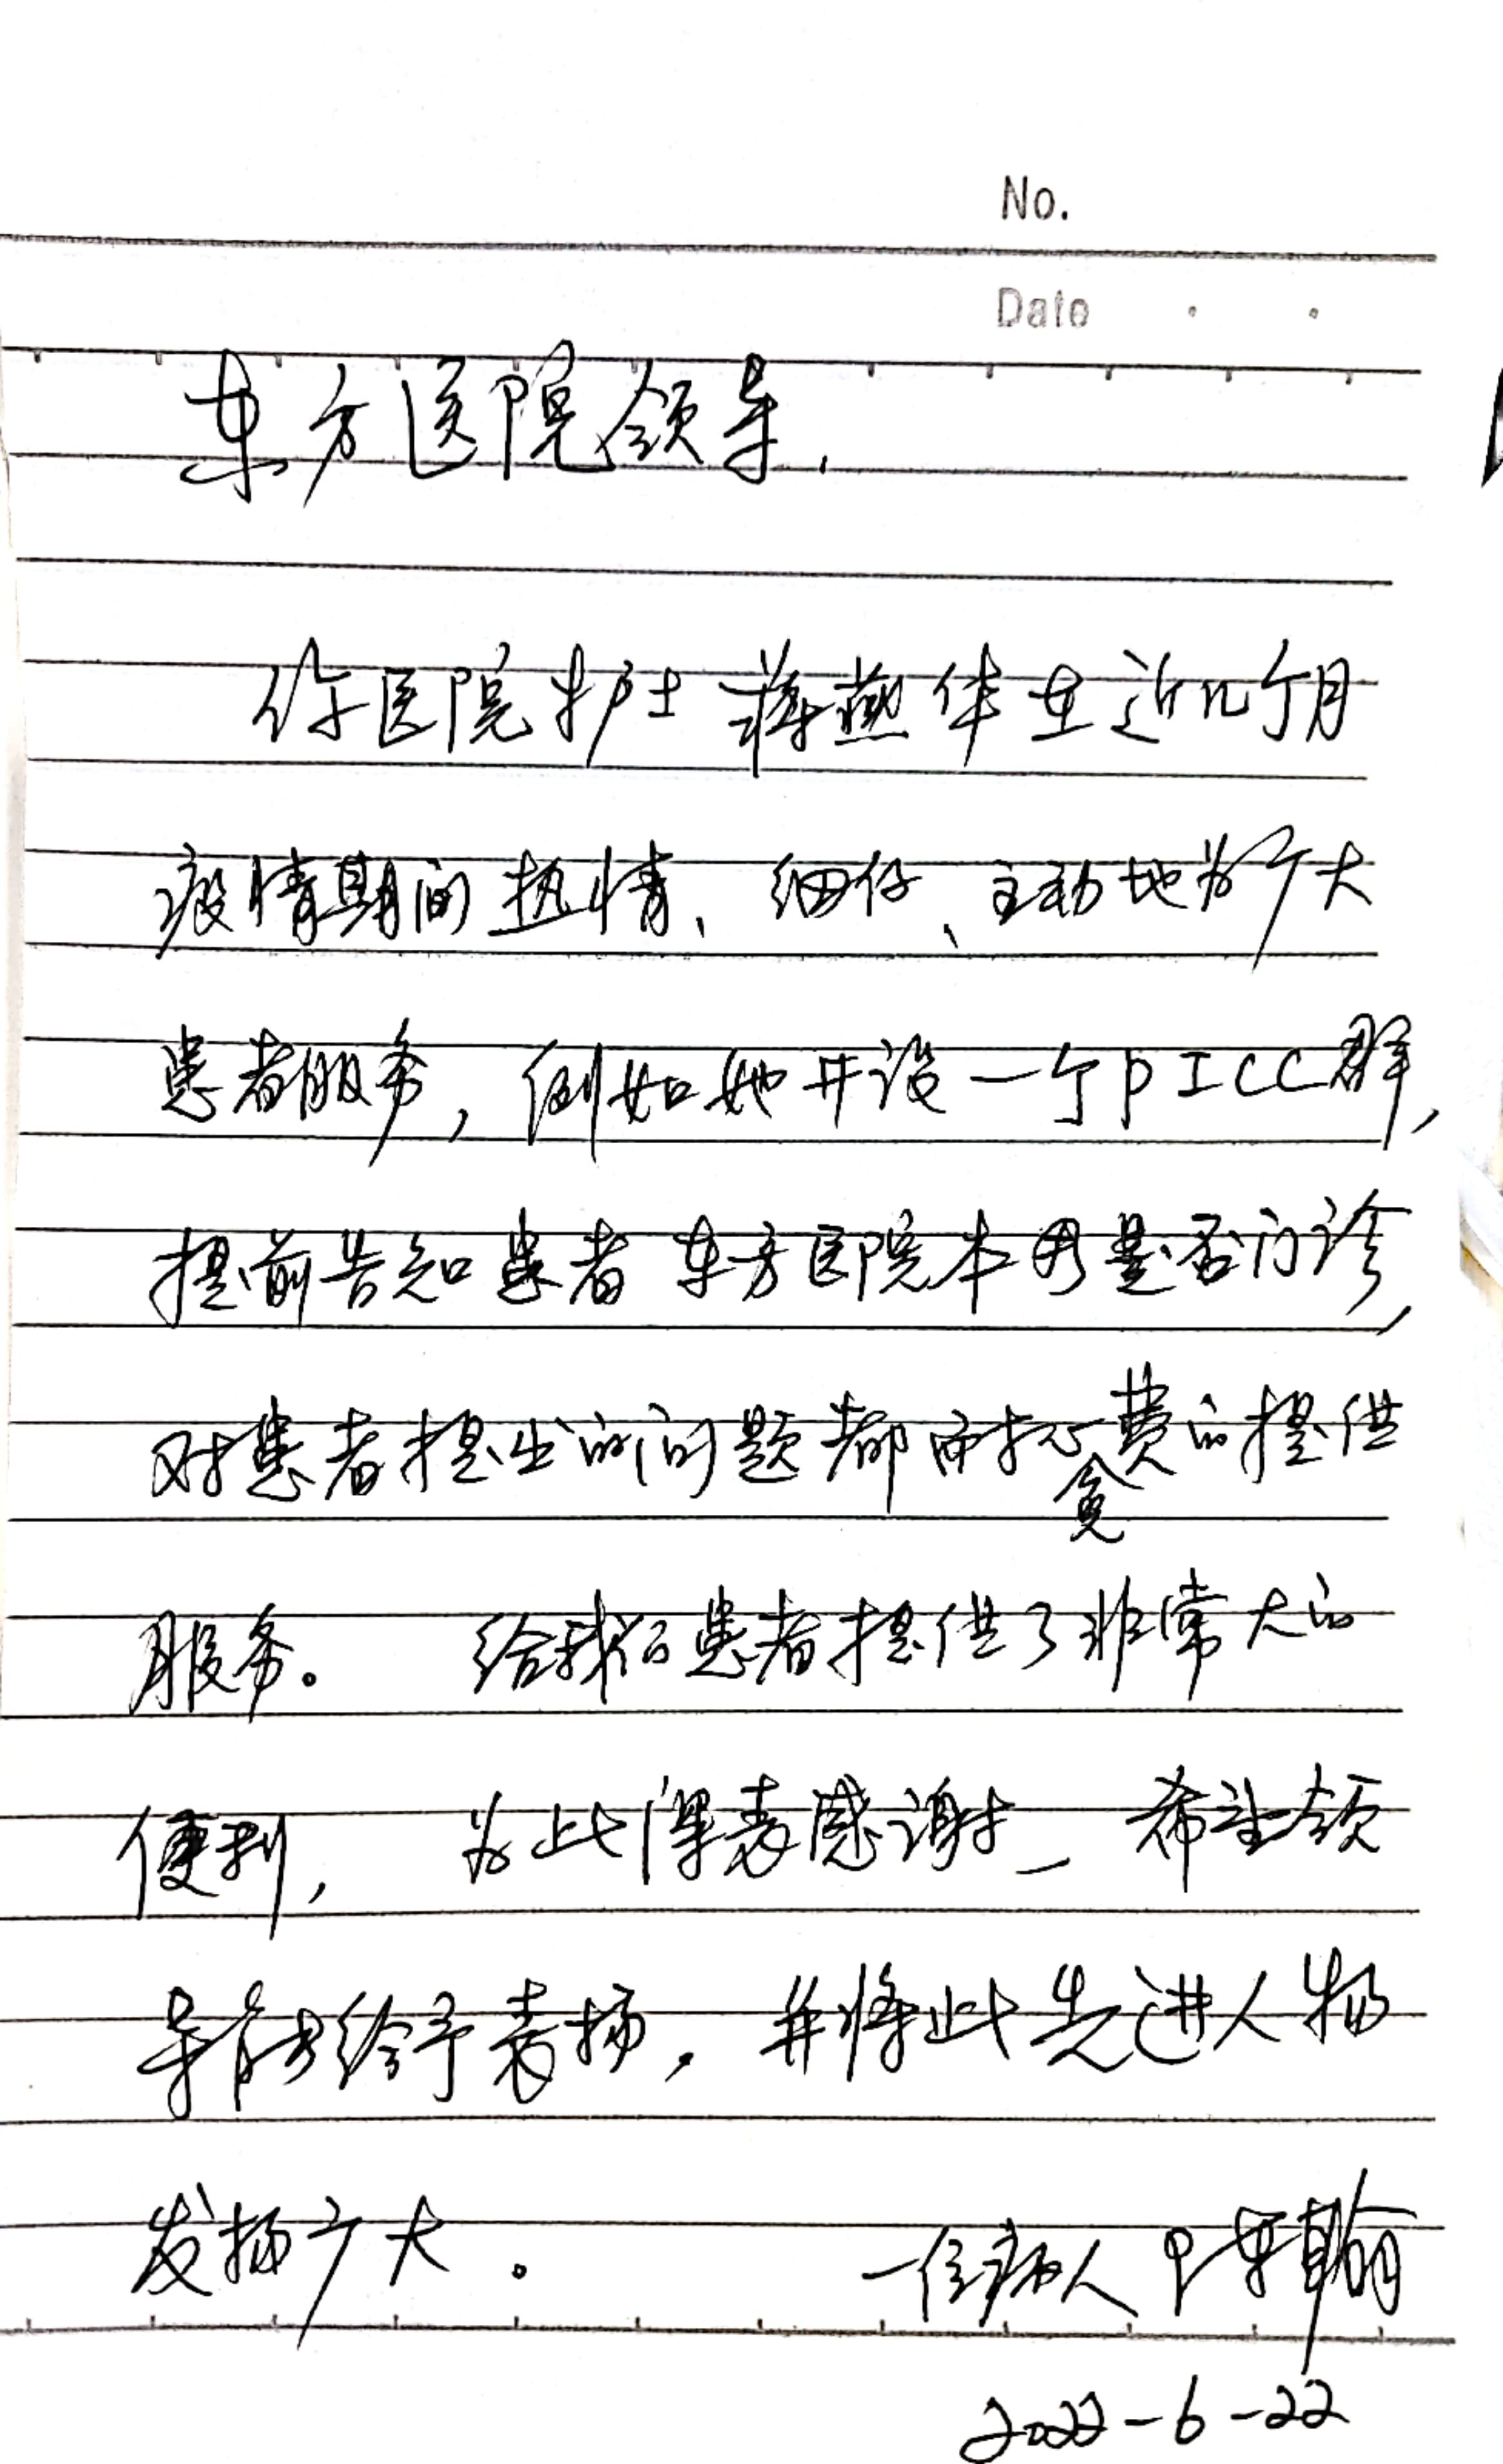 No.
Date
东方医院领导,
你医院护士蒋燕华在近几个月
疫情期间热情、细仔、主动地为广大
患者服务,例如她开设一个PICC群,
提前告知患者东方医院本周是否门诊,
对患者提出的问题都耐心免费的提供
服务。 给我们患者提供了非常大的
便利, 为此深表感谢, 希望领
导能给予表扬,并将此先进人物
发扬广大。 一位病人 陈翰
2022-6-22